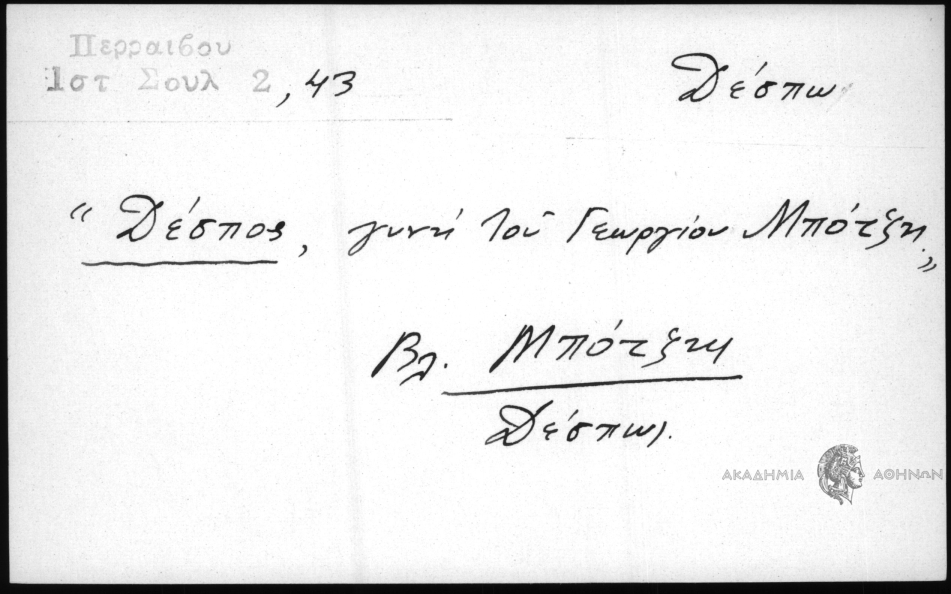 Περραιβου
Ιστ Σουλ 2, 43
Δέσπω
“ Δέσπος, γυνή τοῦ Γεωργίου Μπότζη.”
Βλ. Μπότζη
Δέσπω.
ΑΚΑΔΗΜΙΑ ΑΘΗΝΩΝ